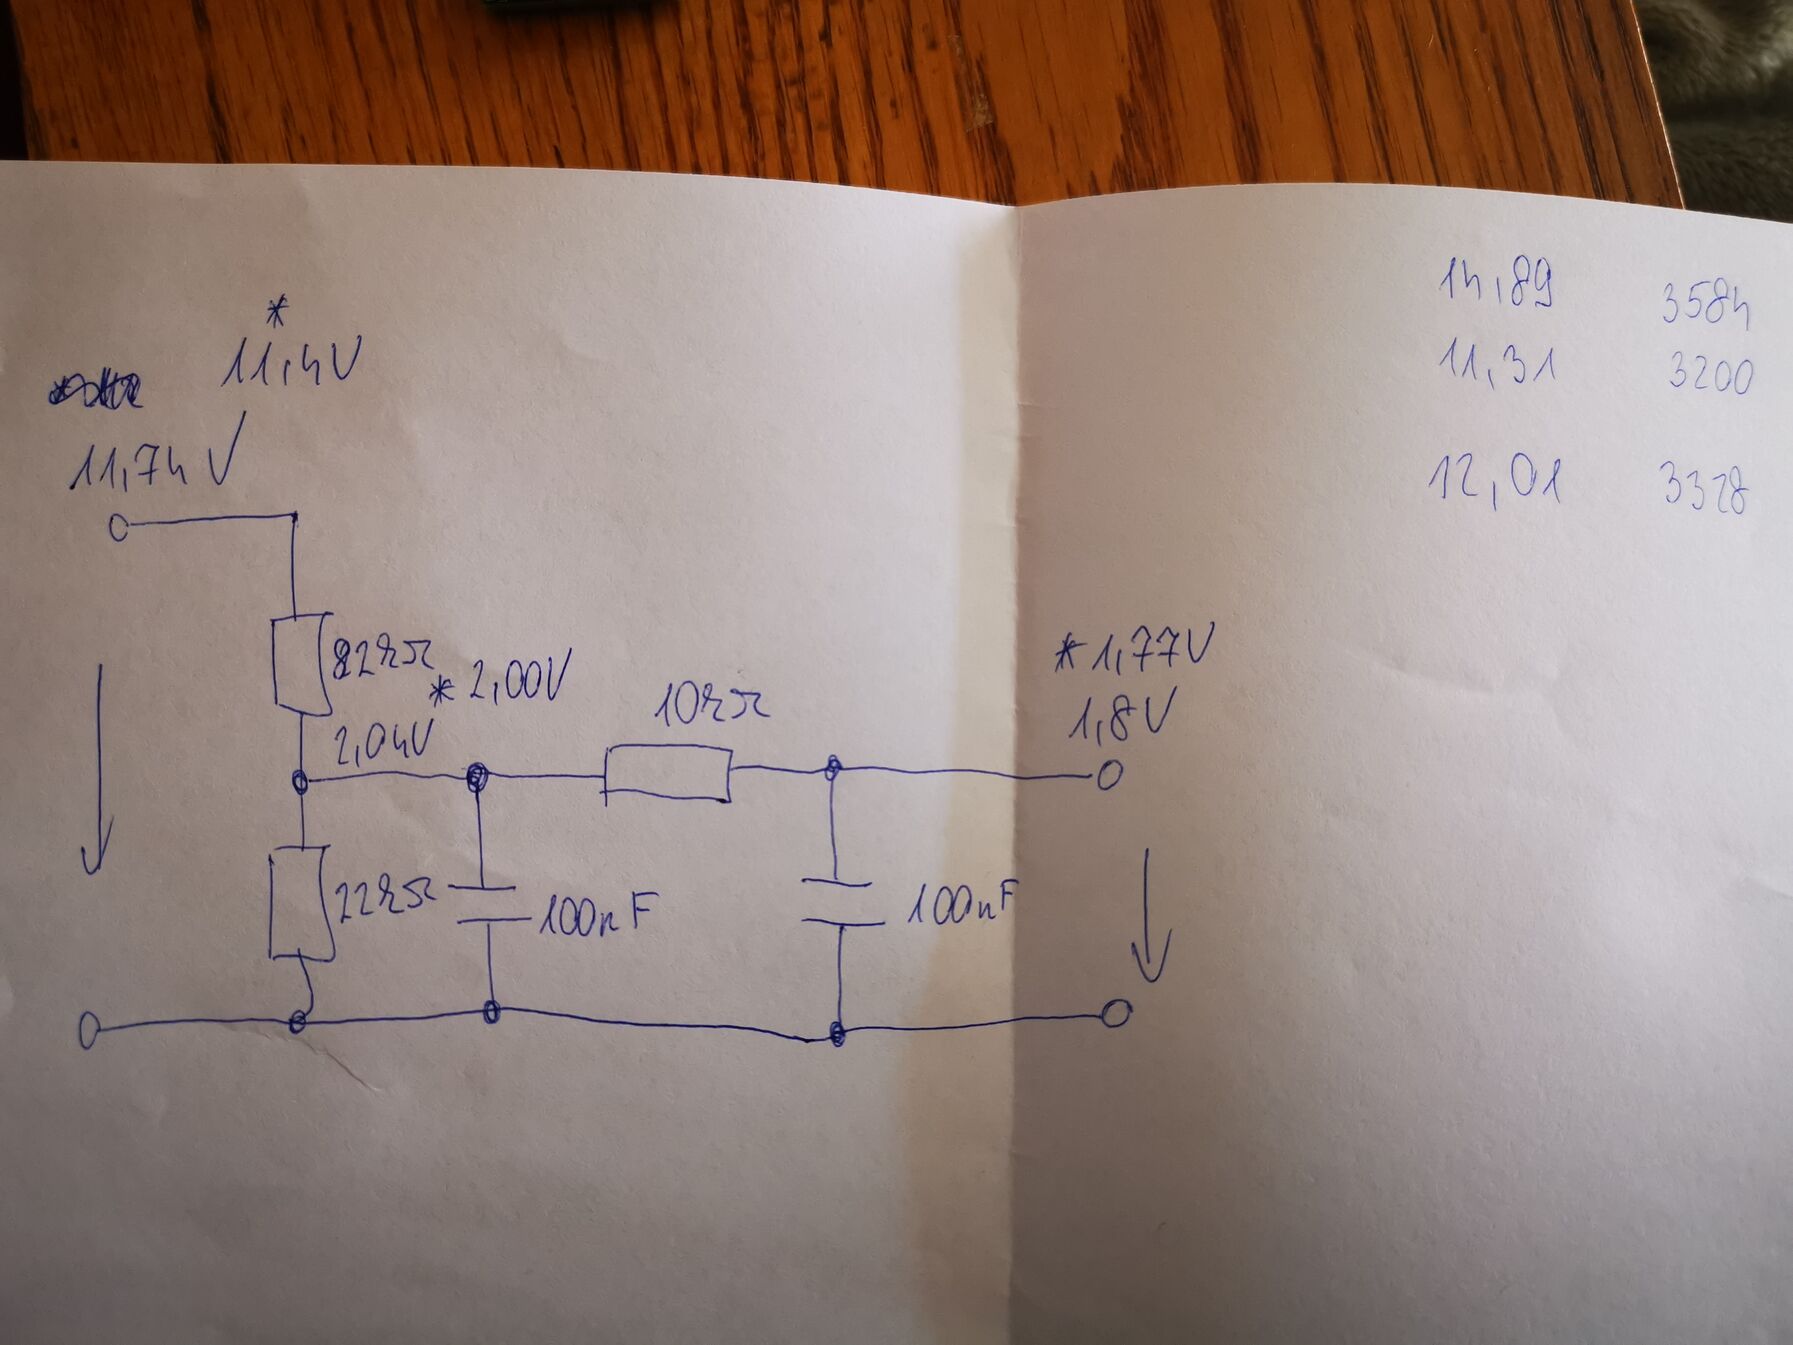 *
11,4V
11,74V
82kΩ
* 2,00V
2,04V
10kΩ
* 1,77V
1,8V
22kΩ
100nF
100nF
14,89 3584
11,31 3200
12,01 3328